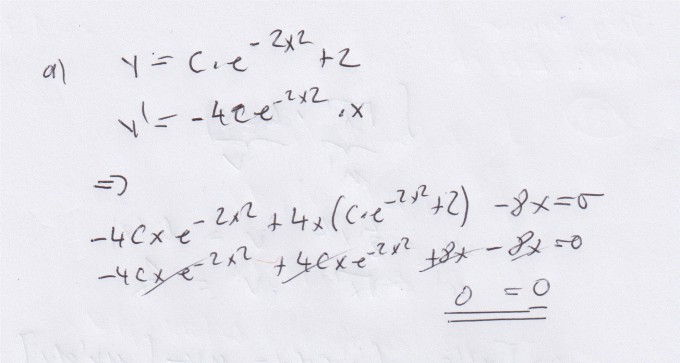 a) y = C·e^-2x² +2
y' = -4Ce^-2x² ·x
=>
-4Cxe^-2x² + 4x(C·e^-2x²+2) -8x=0
-4Cxe^-2x² +4Cxe^-2x² +8x - 8x=0
0 = 0